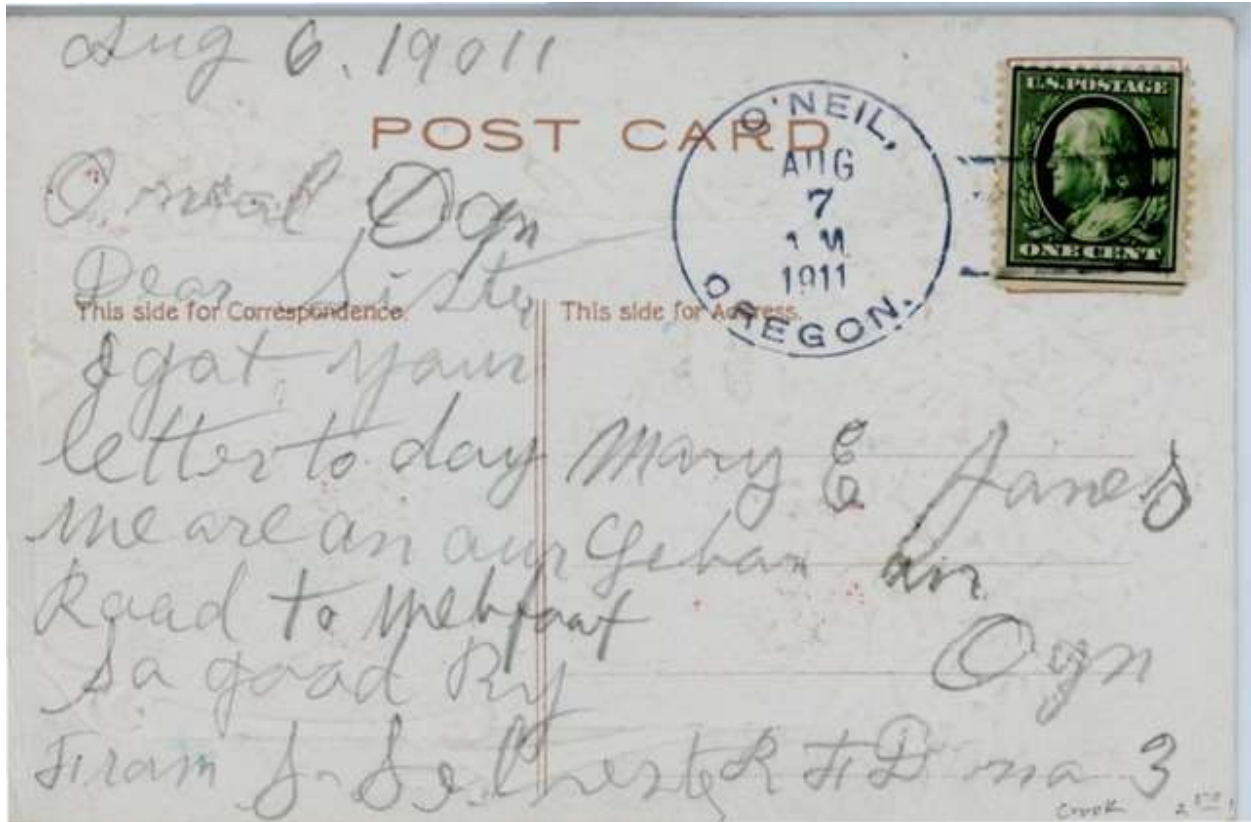 Aug 6. 19011
POST CARD
O'NEIL,
AUG
7
1911
OREGON.
U.S. POSTAGE
ONE CENT
Ogn
Dear Sister
This side for Correspondence.
This side for Address.
I got your
letter to day
We are on our
Road to Webfoot
So good By
From
Mary E Jones
Ogn
R F D no 3
Crook